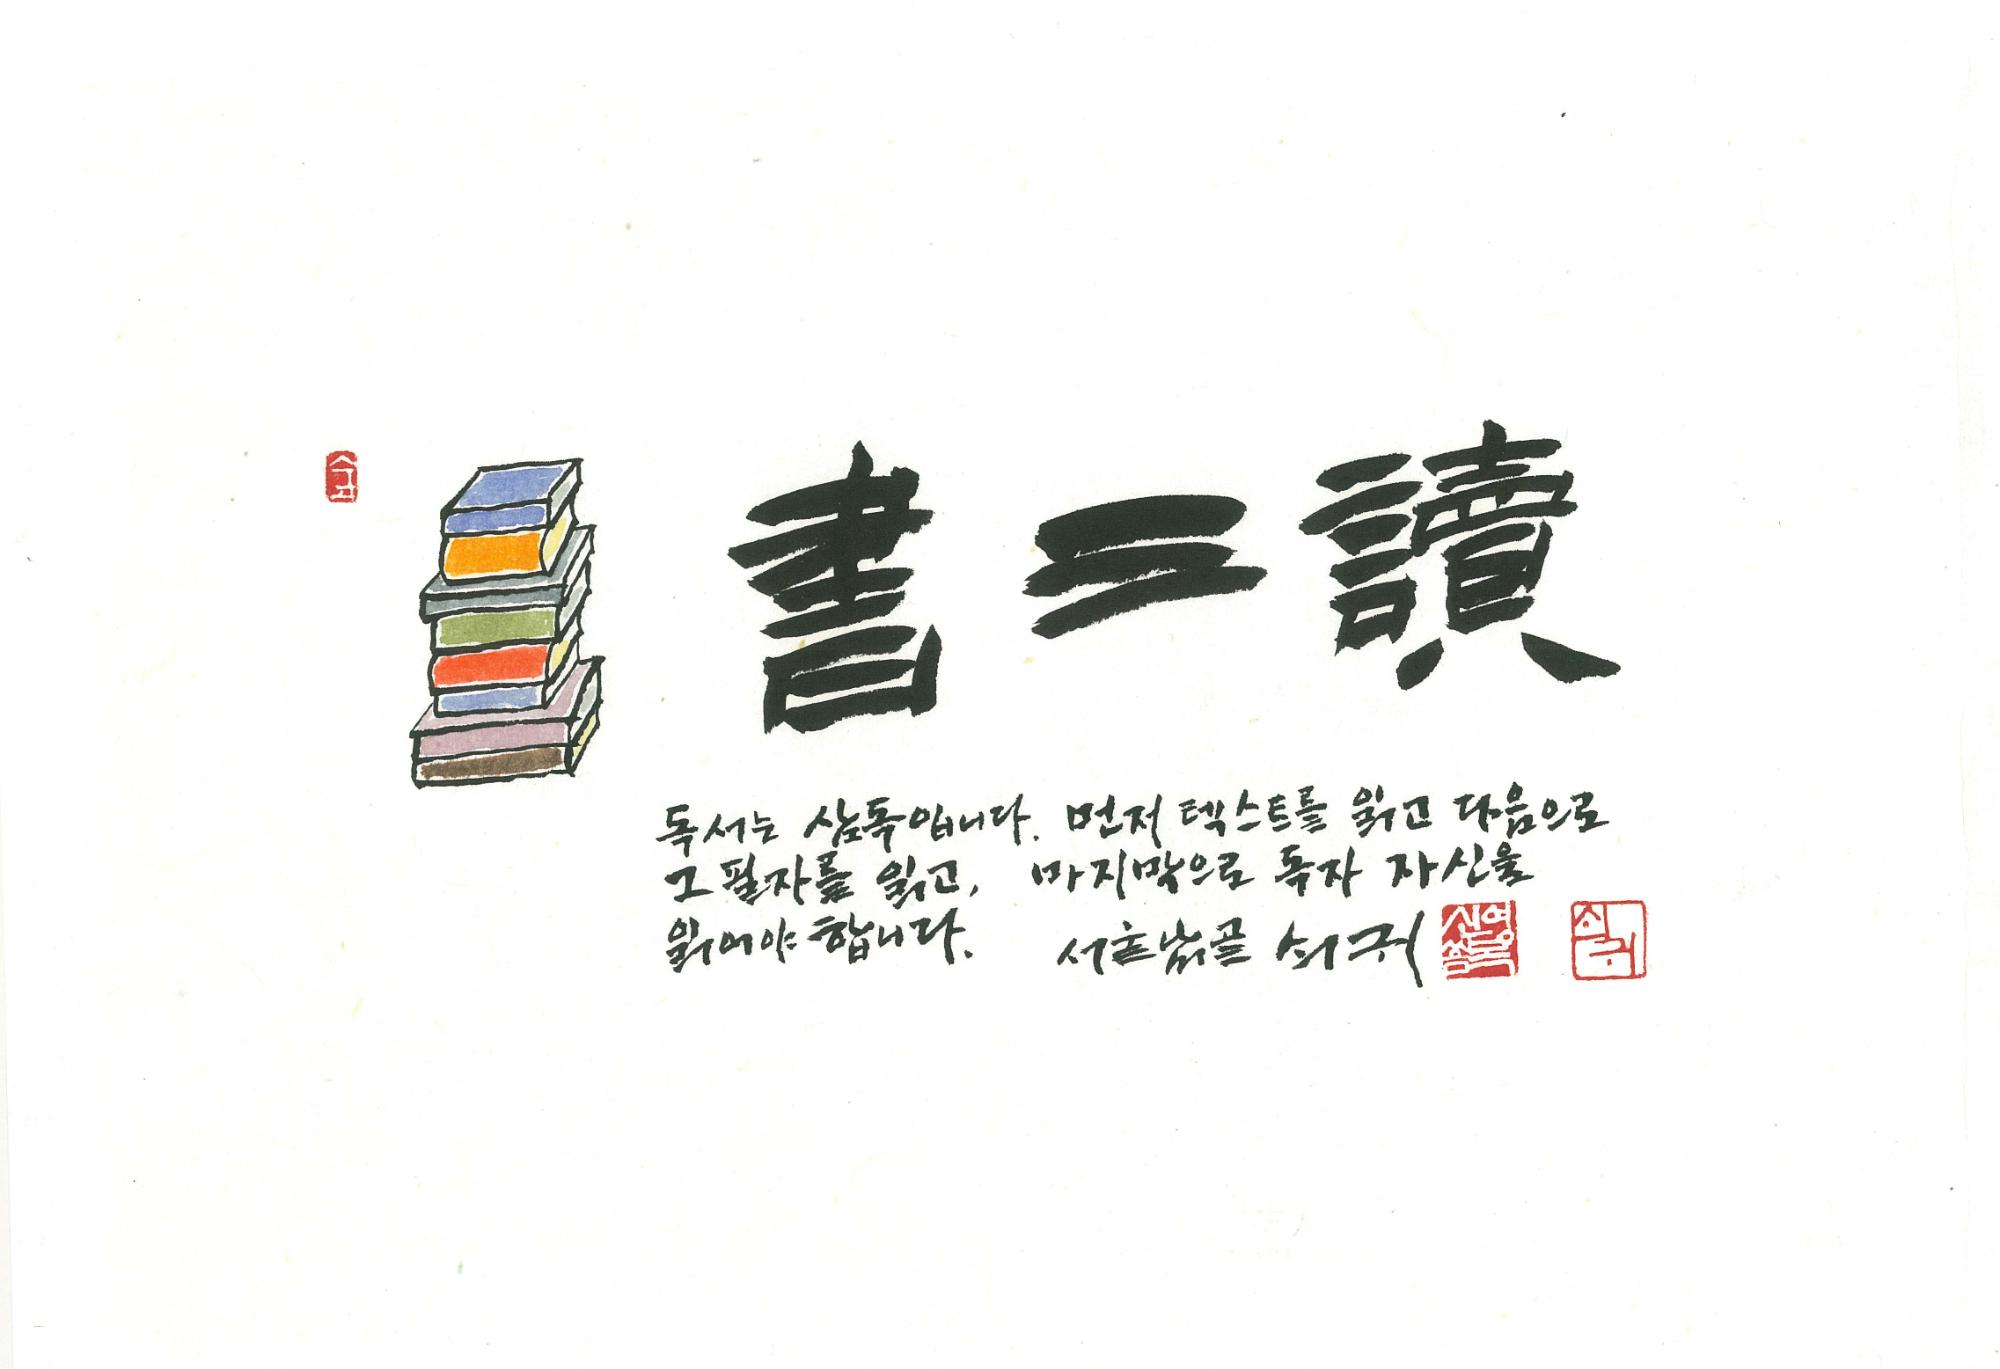 書三讀
독서는 삼독입니다. 먼저 텍스트를 읽고 다음으로
그 필자를 읽고, 마지막으로 독자 자신을
읽어야 합니다. 쇠귀
신영복 씀
쇠귀